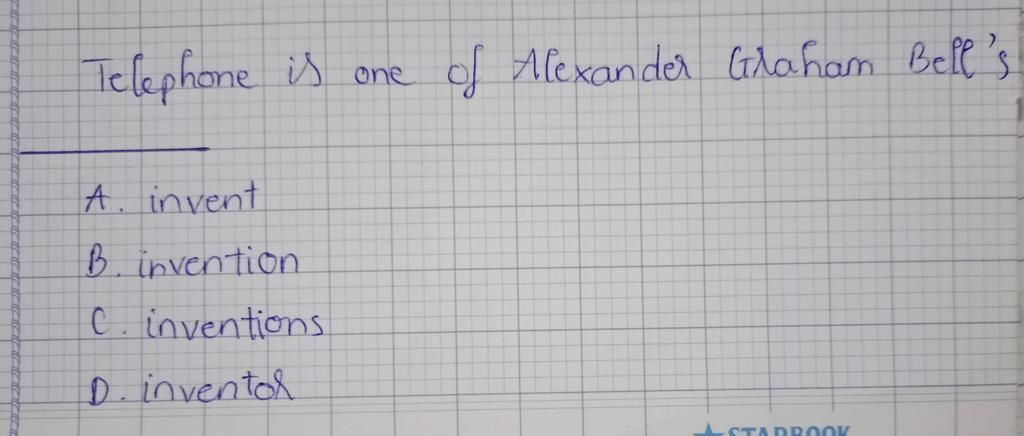 Telephone is one of Alexander Graham Bell's
__________
A. invent
B. invention
C. inventions
D. inventor
STARBOOK